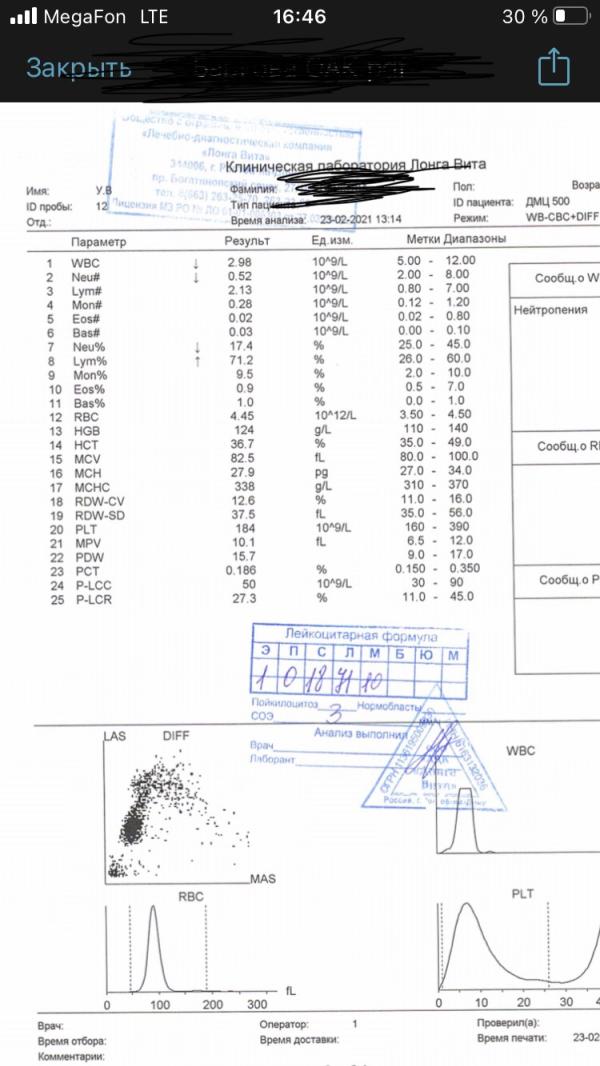 MegaFon LTE 16:46 30 %
Закрыть
«Лечебно-диагностическая компания
«Лонга Вита»
Клиническая лаборатория Лонга Вита
Имя: У.В Фамилия: Пол: Возра
ID пробы: 12 Тип ID пациента: ДМЦ 500
Отд.: Время анализа: 23-02-2021 13:14 Режим: WB-CBC+DIFF
Параметр Результ Ед.изм. Метки Диапазоны
1 WBC ↓ 2.98 10^9/L 5.00 - 12.00
2 Neu# ↓ 0.52 10^9/L 2.00 - 8.00
3 Lym# 2.13 10^9/L 0.80 - 7.00
4 Mon# 0.28 10^9/L 0.12 - 1.20
5 Eos# 0.02 10^9/L 0.02 - 0.80
6 Bas# 0.03 10^9/L 0.00 - 0.10
7 Neu% ↓ 17.4 % 25.0 - 45.0
8 Lym% ↑ 71.2 % 26.0 - 60.0
9 Mon% 9.5 % 2.0 - 10.0
10 Eos% 0.9 % 0.5 - 7.0
11 Bas% 1.0 % 0.0 - 1.0
12 RBC 4.45 10^12/L 3.50 - 4.50
13 HGB 124 g/L 110 - 140
14 HCT 36.7 % 35.0 - 49.0
15 MCV 82.5 fL 80.0 - 100.0
16 MCH 27.9 pg 27.0 - 34.0
17 MCHC 338 g/L 310 - 370
18 RDW-CV 12.6 % 11.0 - 16.0
19 RDW-SD 37.5 fL 35.0 - 56.0
20 PLT 184 10^9/L 160 - 390
21 MPV 10.1 fL 6.5 - 12.0
22 PDW 15.7 9.0 - 17.0
23 PCT 0.186 % 0.150 - 0.350
24 P-LCC 50 10^9/L 30 - 90
25 P-LCR 27.3 % 11.0 - 45.0
Сообщ.о W
Нейтропения
Сообщ.о RI
Сообщ.о P
Лейкоцитарная формула
Э П С Л М Б Ю М
1 0 18 71 10
Пойкилоцитоз Нормобласты
СОЭ 3
Анализ выполнил
Врач
Лаборант
LAS DIFF
MAS
WBC
RBC
0 100 200 300 fL
PLT
0 10 20 30 4
Врач: Оператор: 1 Проверил(а):
Время отбора: Время доставки: Время печати: 23-02
Комментарии: